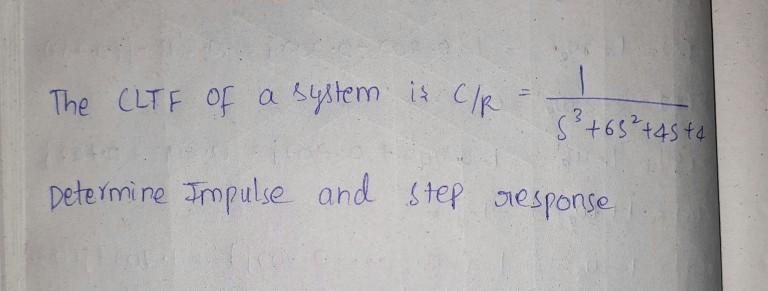 The CLTF of a system is C/R = 1 / S³+6S²+4S+4
Determine Impulse and step response